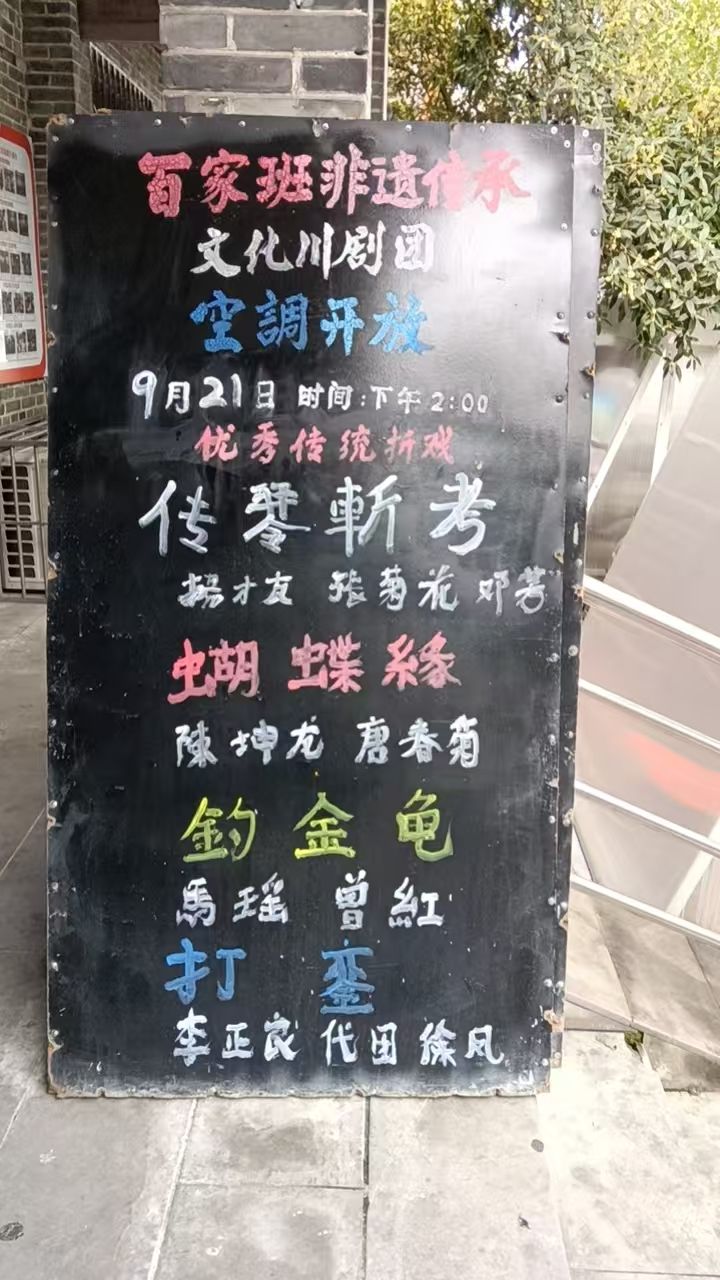 百家班非遗传承
文化川剧团
空調开放
9月21日 时间:下午2:00
优秀传统折戏
传琴斬考
杨才友 张菊花 邓芳
蝴蝶緣
陳坤龙 唐春菊
釣金龟
馬瑶 曾紅
打銮
李正家 代田 徐凤